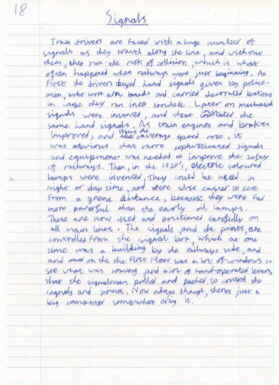 18
Signals
Train drivers are faced with a huge number of
signals as they travel along the line, and without
them, they run the risk of collision, which is what
often happened when railways were just beginning. At
first the drivers obeyed hand signals given by police-
men, who wore arm bands and carried
in case they ran into trouble. Later on mechanical
signals were invented, and these the
same hand signals. As train engines and brakes
improved, and the average speed rose, it
was obvious that more sophisticated signals
and equipment was needed to improve the safety
of railways. Then, in the 1920's, electric coloured
lamps were invented. They could be used in
night or day time, and were also easier to see
from a great distance, because they were far
more powerful than the early oil lamps.
These are now used and positioned carefully on
all main lines. The signals and the points, are
controlled from the signal box, which at one
time was a building by the railway side, and
and on the first floor was a lot of windows to
see what was coming, and a lot of hand-operated levers,
that the signalman pulled and pushed to control the
signals and points. Now adays though, there's just a
big computer somewhere doing it.